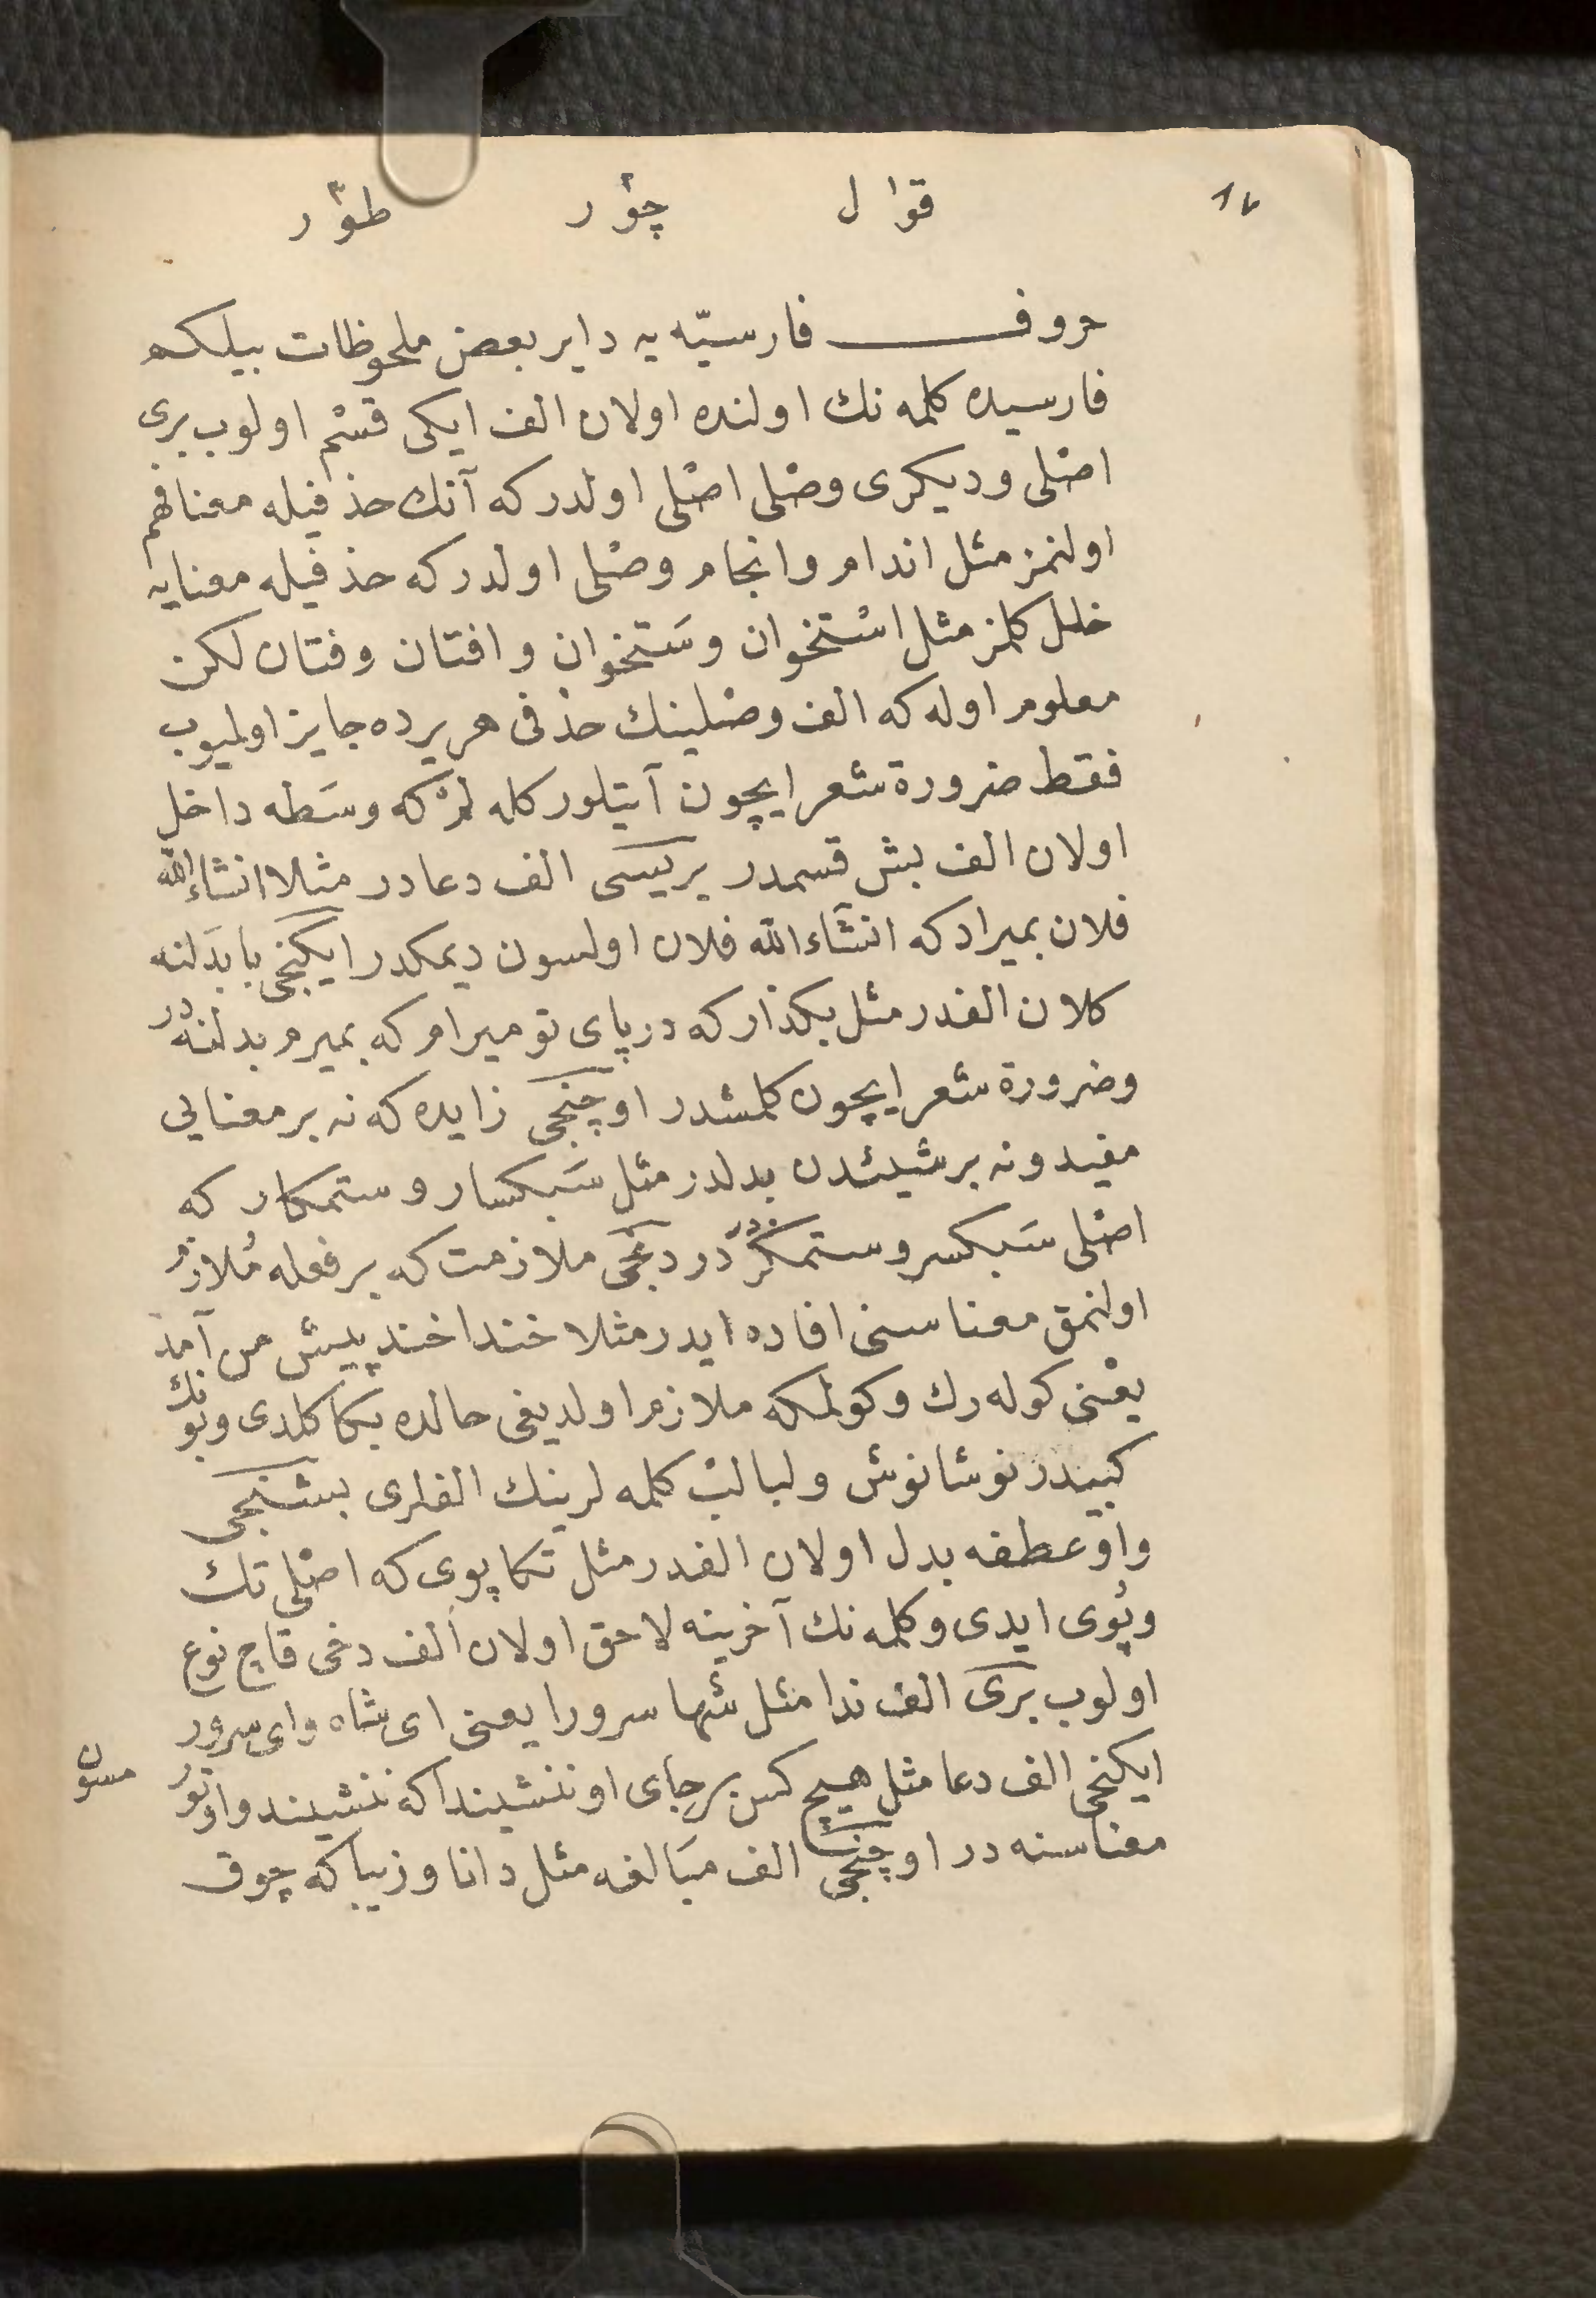 ١٧
قوال چؤر طؤر
حروف فارسیّه یه دایر بعض ملحوظات بیلکم
فارسیده کلمه نك اولنده اولان الف ایکی قسْم اولوب بری
اصْلی ودیکری وصْلی اصْلی اولدر که آنك حذفیله معنا فهم
اولنمز مثل اندام وانجام وصْلی اولدر که حذفیله معنایه
خلل کلمز مثل اسْتخوان وسَتخوان وافتان وفتان لکن
معلوم اوله که الف وصْلینك حذفی هر یرده جایز اولمیوب
فقط ضرورة شعر ایچون آیتلور کلمه لرْ که وسَطه داخل
اولان الف بش قسمدر بریسی الف دعادر مثلا انشاءالله
فلان بمیراد که انشَاءالله فلان اولسون دیمکدر ایکنجی با بدَلنه
کلان الفدر مثل بکذار که در پای تو میرام که بمیرم بدلنه در
وضرورة شعر ایچون کلمشدر اوچنجی زایده که نه بر معنایی
مفید ونه بر شیئدن بدلدر مثل سَبکسار وستمکار که
اصْلی سَبکسر وستمکَرْ در دردنجی ملازمت که بر فعله مُلازم
اولنمق معناسنی افاده ایدر مثلا خندا خند پیش من آمد
یعْنی کوله رك وکولمکه ملازم اولدیغی حالده بکا کلدی وبونك
کبیدر نوشانوش ولبالبْ کلمه لرینك الفلری بشنجی
واوعطفه بدل اولان الفدر مثل تکاپوی که اصْلی تك
وپُوی ایدی وکلمه نك آخرینه لاحق اولان الف دخی قاچ نوع
اولوب بری الف ندا مثل شها سرورا یعنی ای شاه وای سرور
ایکنجی الف دعا مثل هیچ کس بر جای او ننشیندا که ننشیند واوتور
مسون
معناسنه در اوچنجی الف مبَالغه مثل دانا وزیبا که چوق